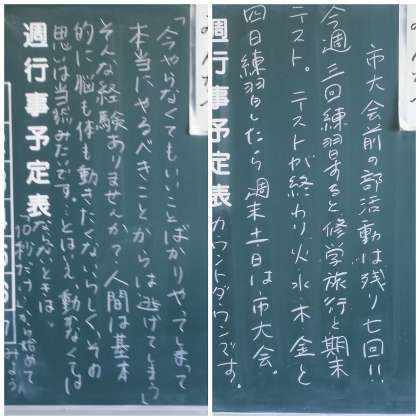 「今やらなくてもいいことばかりやってしまって
本当にやるべきことからは逃げてしまう」
そんな経験ありませんか?人間は基本
的に脳も体も動きたくないらしく、その
思いは当然みたいです。とはいえ、動かなくては
ならないときは
10秒だけ から始めて
みよう
週行事予定表
市大会前の部活動は残り七回!!
今週三回練習すると修学旅行と期末
テスト。テストが終わり火水木金と
四日練習したら週末土日は市大会。
カウントダウンです。
週行事予定表